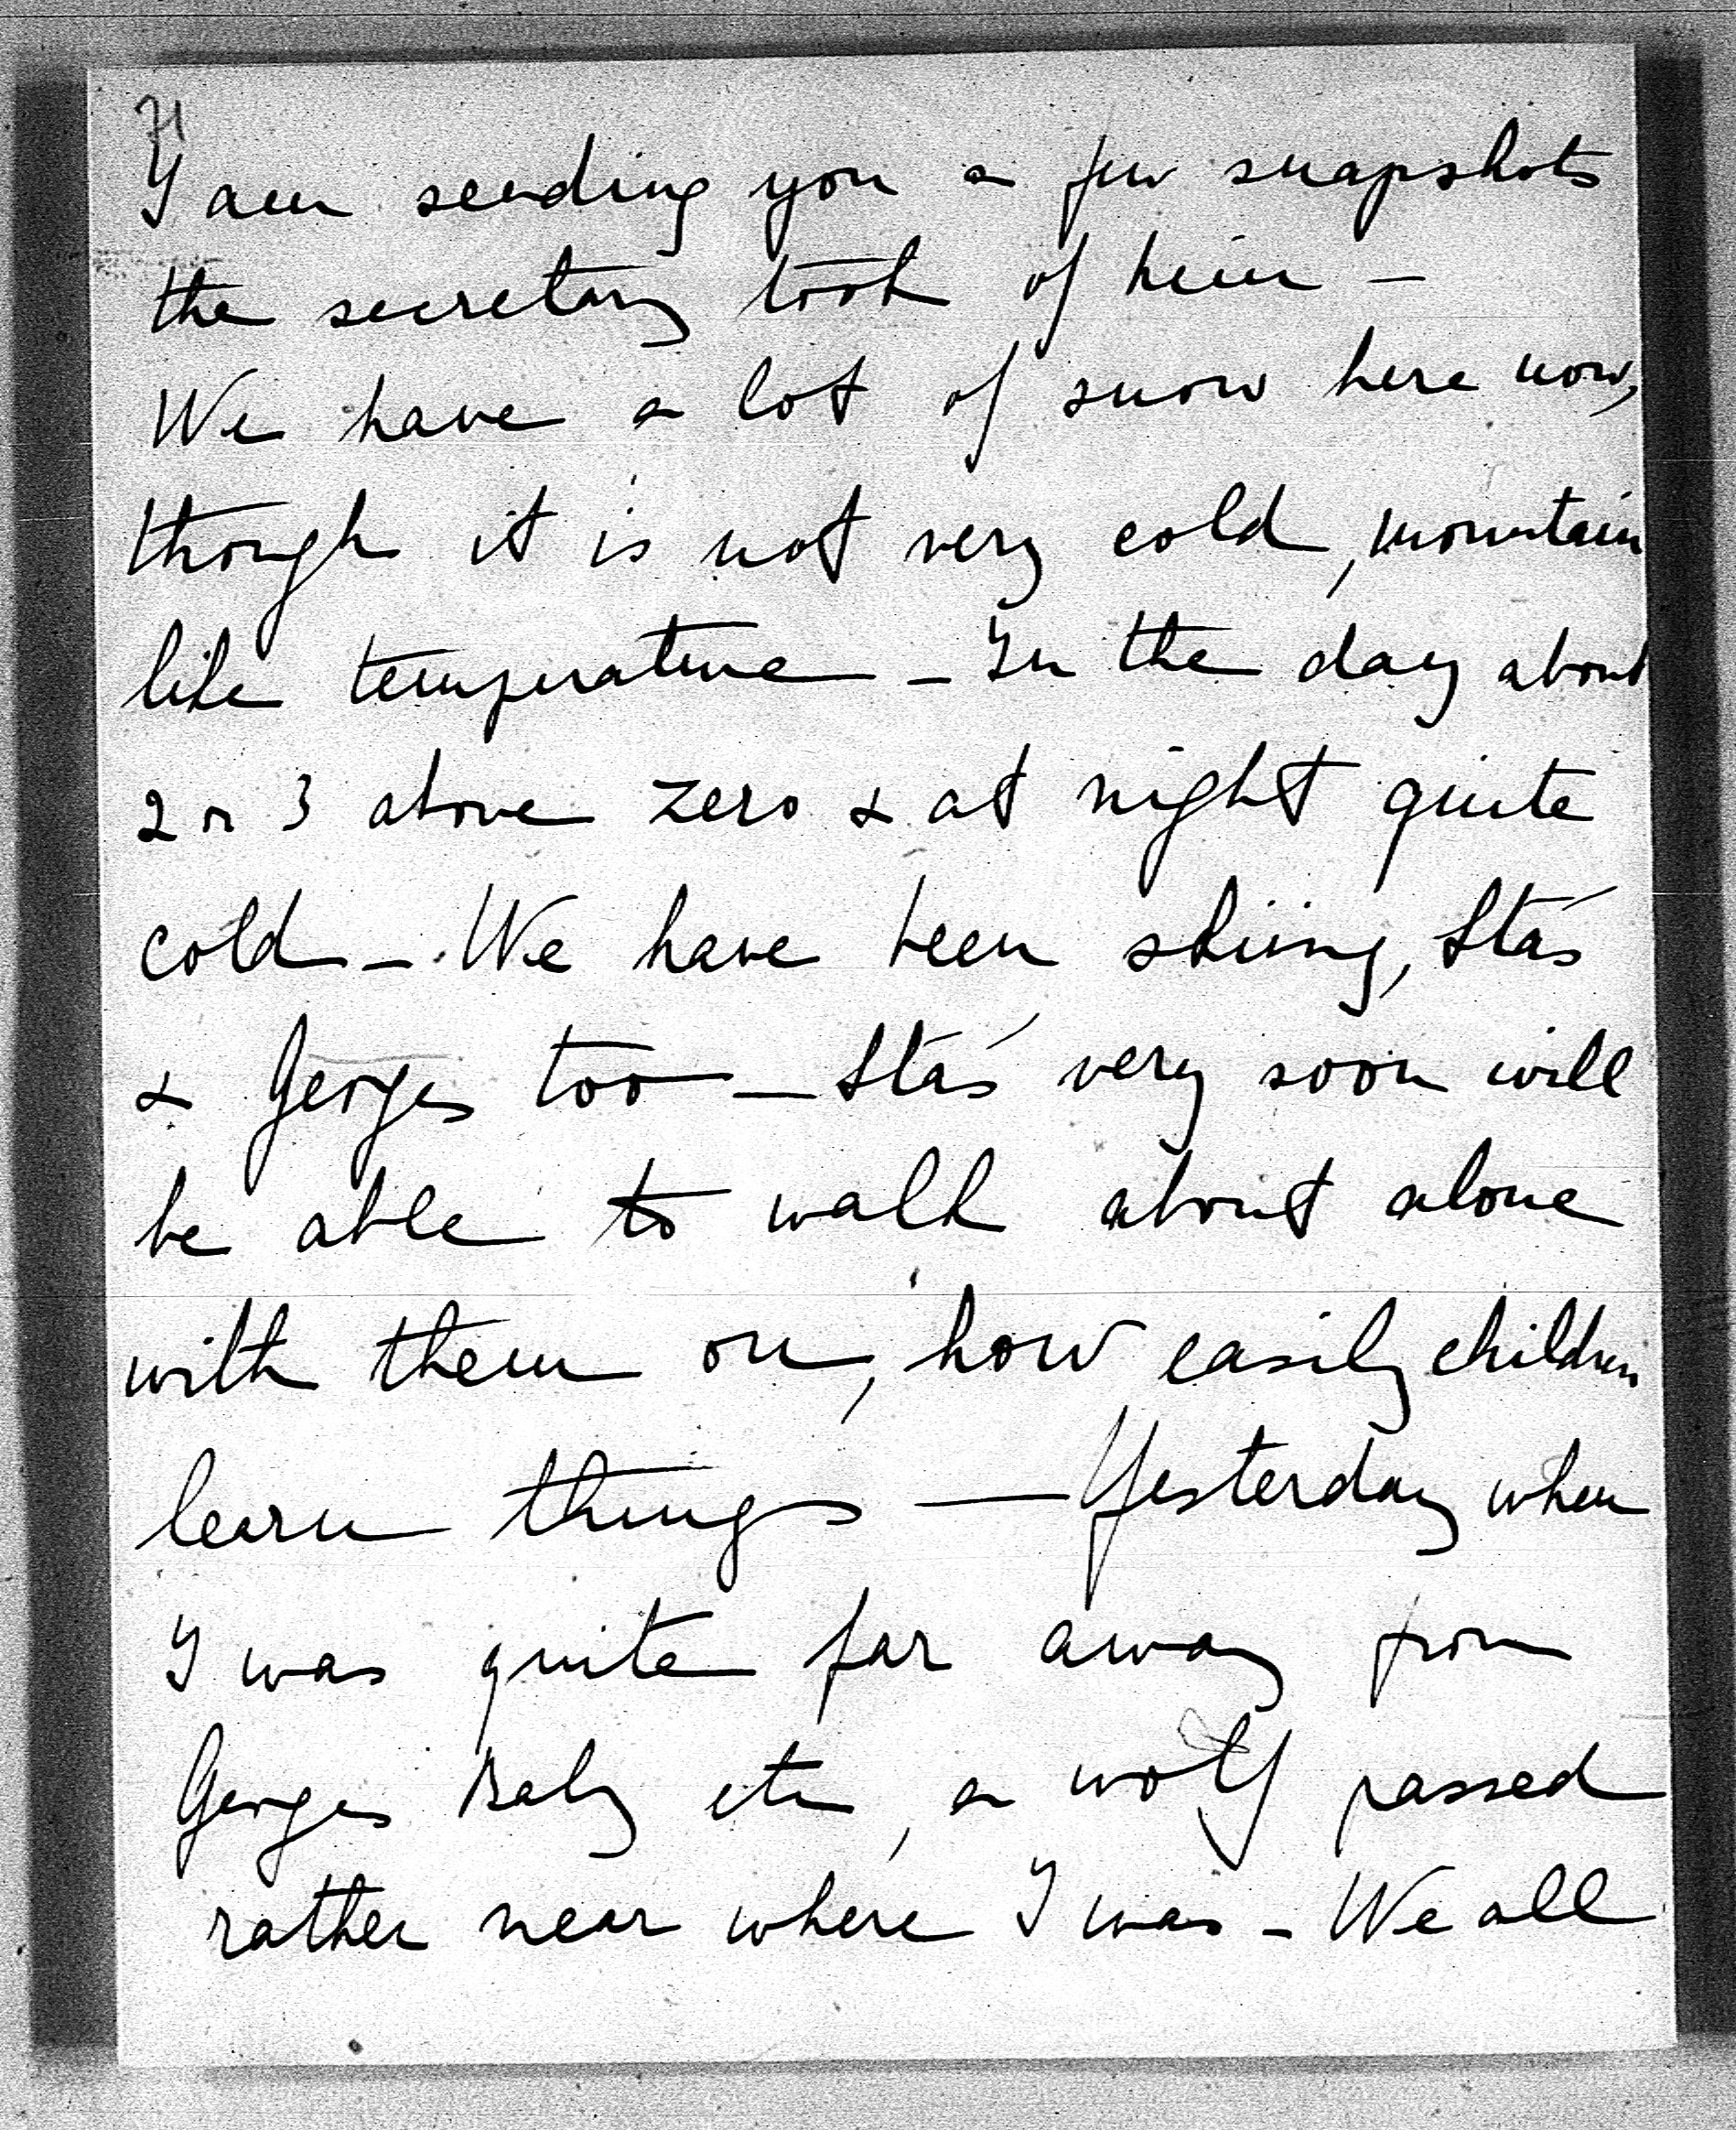 71
I am sending you a few snapshots
the secretary took of him –
We have a lot of snow here now,
though it is not very cold, mountain
like temperature – In the day about
2 or 3 above zero & at night quite
cold – We have been skiing, Staś
& Georges too – Staś very soon will
be able to walk about alone
with them on, how easily children
learn things – Yesterday when
I was quite far away from
Georges Baby etc, a wolf passed
rather near where I was – We all